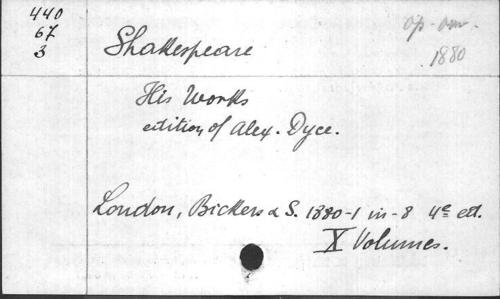 440
67
3
Shakespeare
op. omn.
1880
His Works
edition of Alex. Dyce.
London, Bickers & S. 1880-1 in-8 4e ed.
X Volumes.